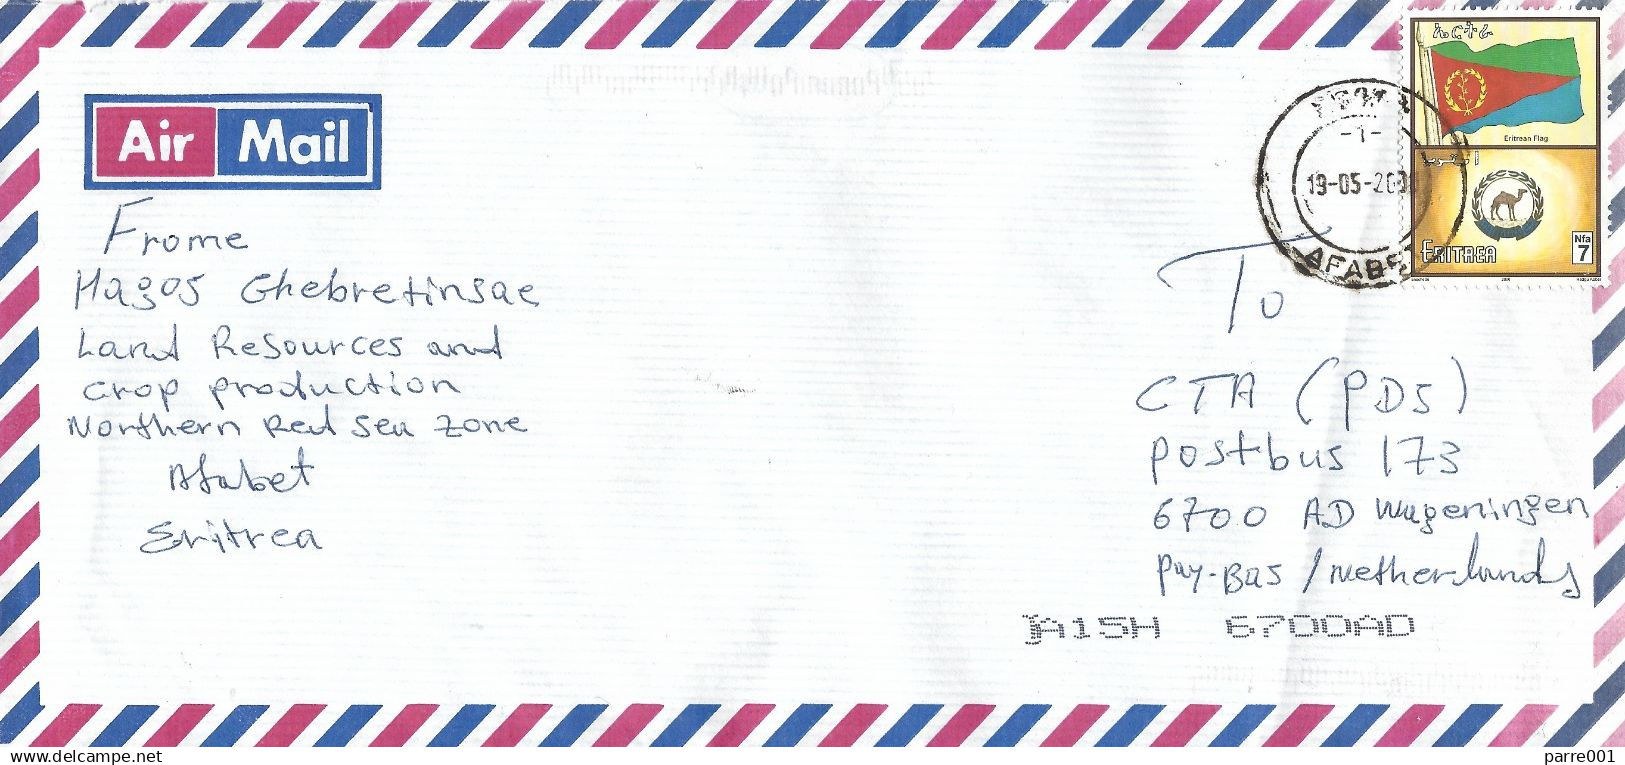 Air Mail
ኤርትራ
Eritrean Flag
-1-
19-05-20
AFABE
ERITREA
Nfa
7
Frome
Hagos Ghebretinsae
Land Resources and
crop production
Northern Red Sea Zone
Afabet
Eritrea
To
CTA (PDS)
postbus 173
6700 AD Wageningen
pay-Bas / Netherlands
JA15H 6700AD
parre001